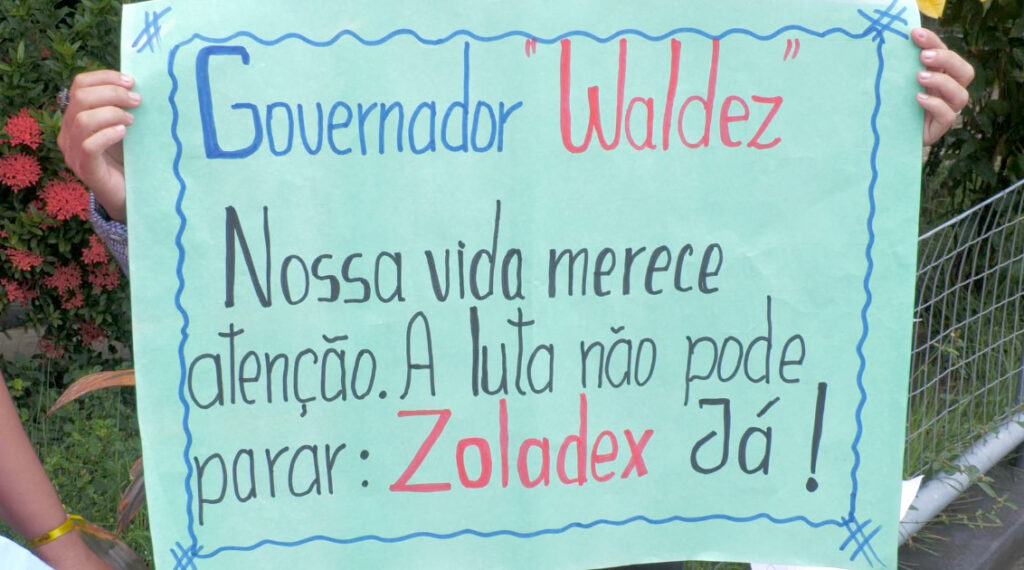 Governador "Waldez"
Nossa vida merece
atenção. A luta não pode
parar: Zoladex Já!